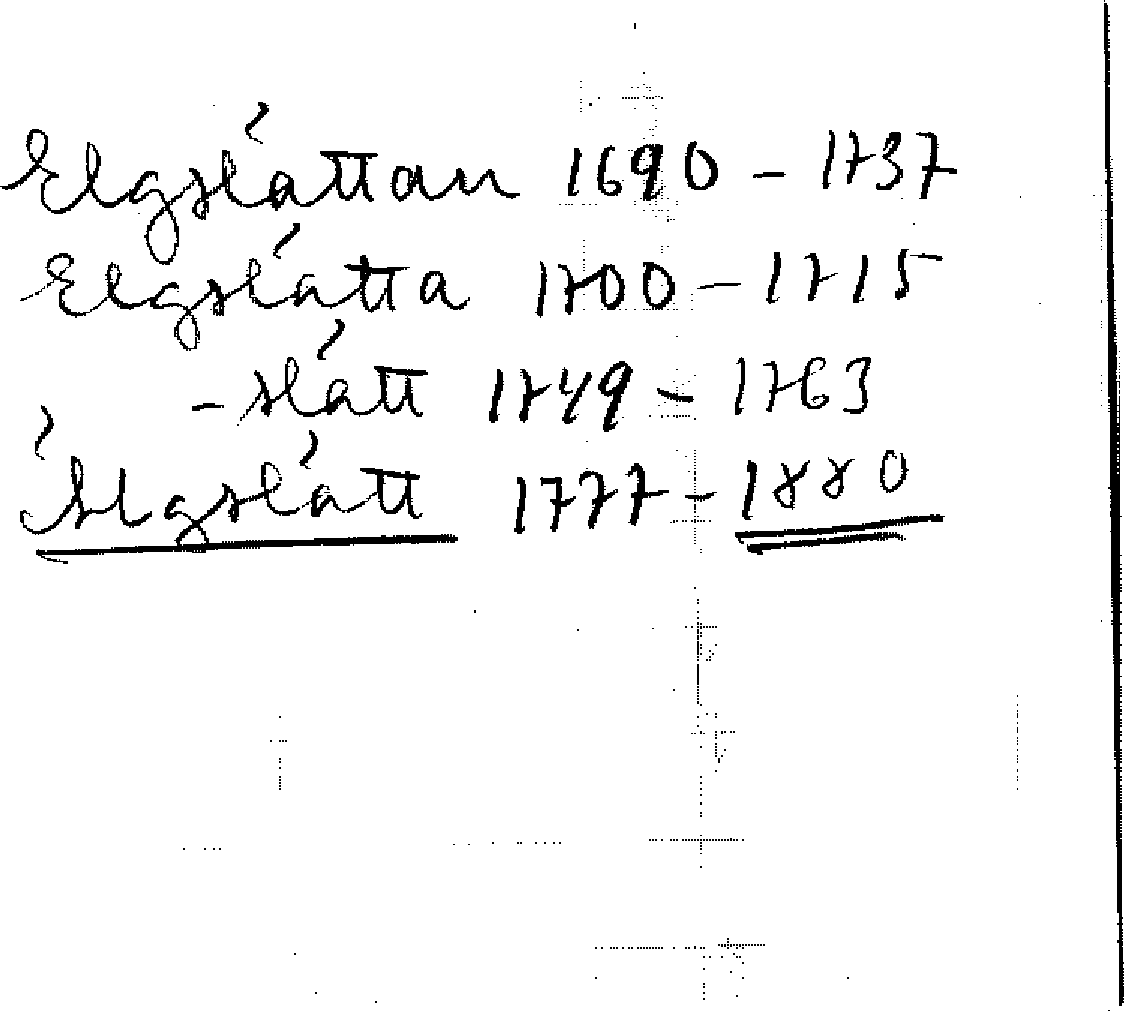 Elgslättan 1690 - 1737
Elgslätta 1700 - 1715
- slätt 1749 - 1763
Älgslätt 1777 - 1880